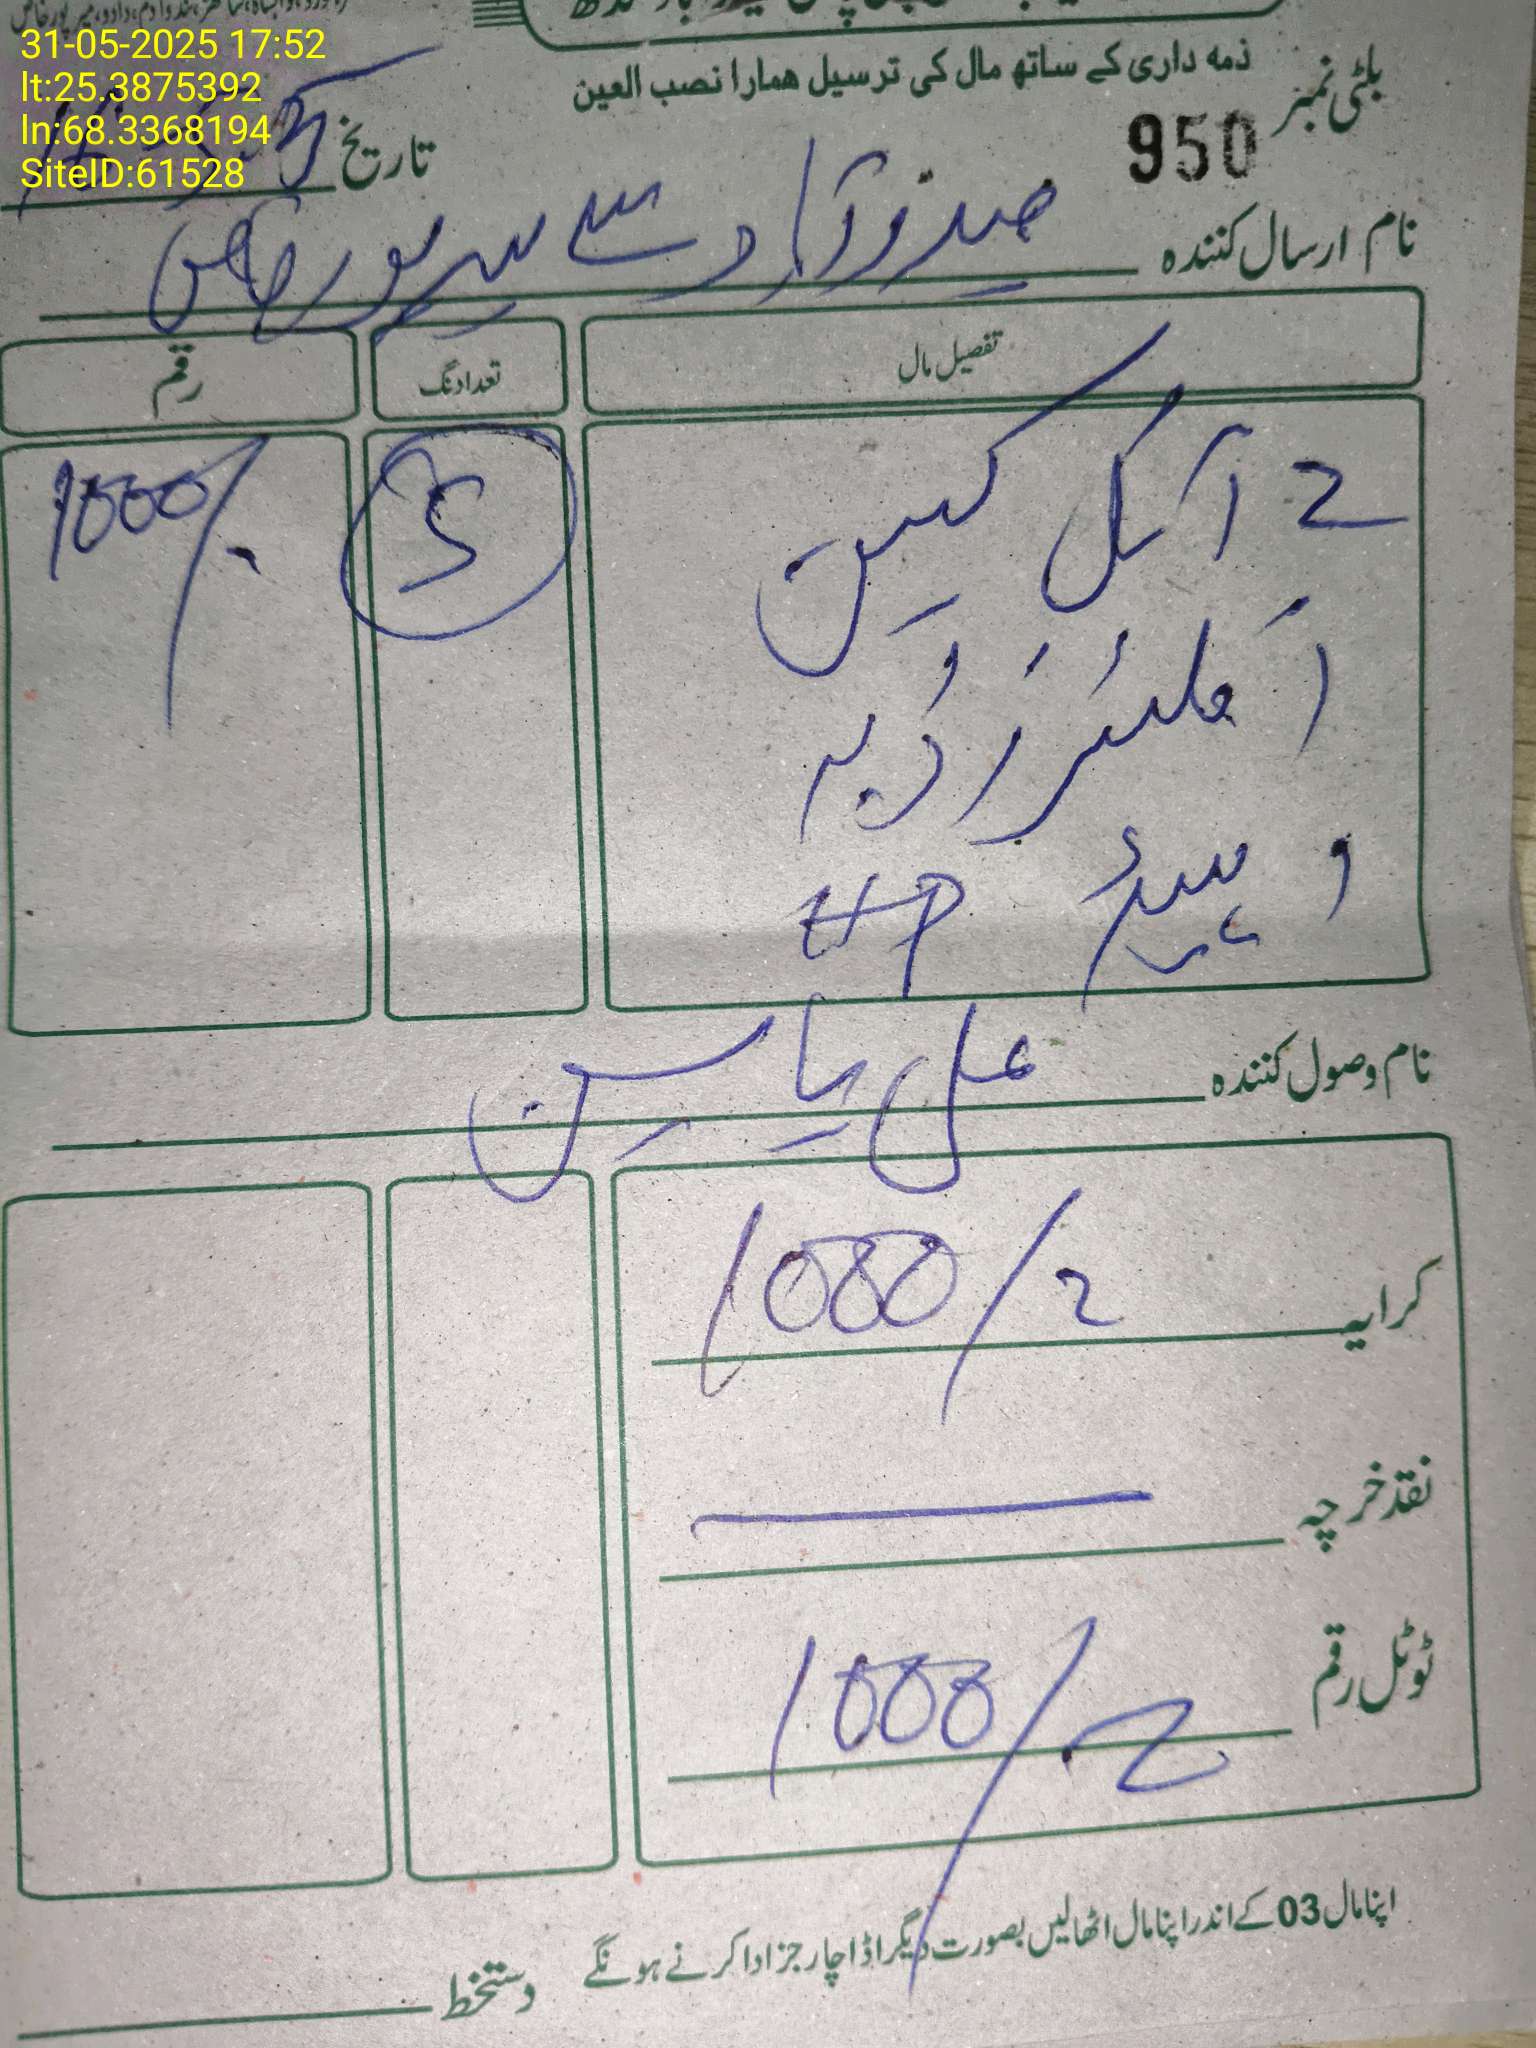 31-05-2025 17:52
lt:25.3875392
ln:68.3368194
SiteID:61528
ذمہ داری کے ساتھ مال کی ترسیل ہمارا نصب العین
بلٹی نمبر 950
تاریخ
نام ارسال کنندہ حیدرآباد سے میرپورخاص
تفصیل مال تعداد نگ رقم
2 آئل کین 5 1000/-
ڈبہ
HP
نام وصول کنندہ علی یاسین
کرایہ 1000/
نقد خرچہ
ٹوٹل رقم 1000/
اپنا مال 03 کے اندر اپنا مال اٹھالیں بصورت دیگر اڈا چارجز ادا کرنے ہونگے
دستخط